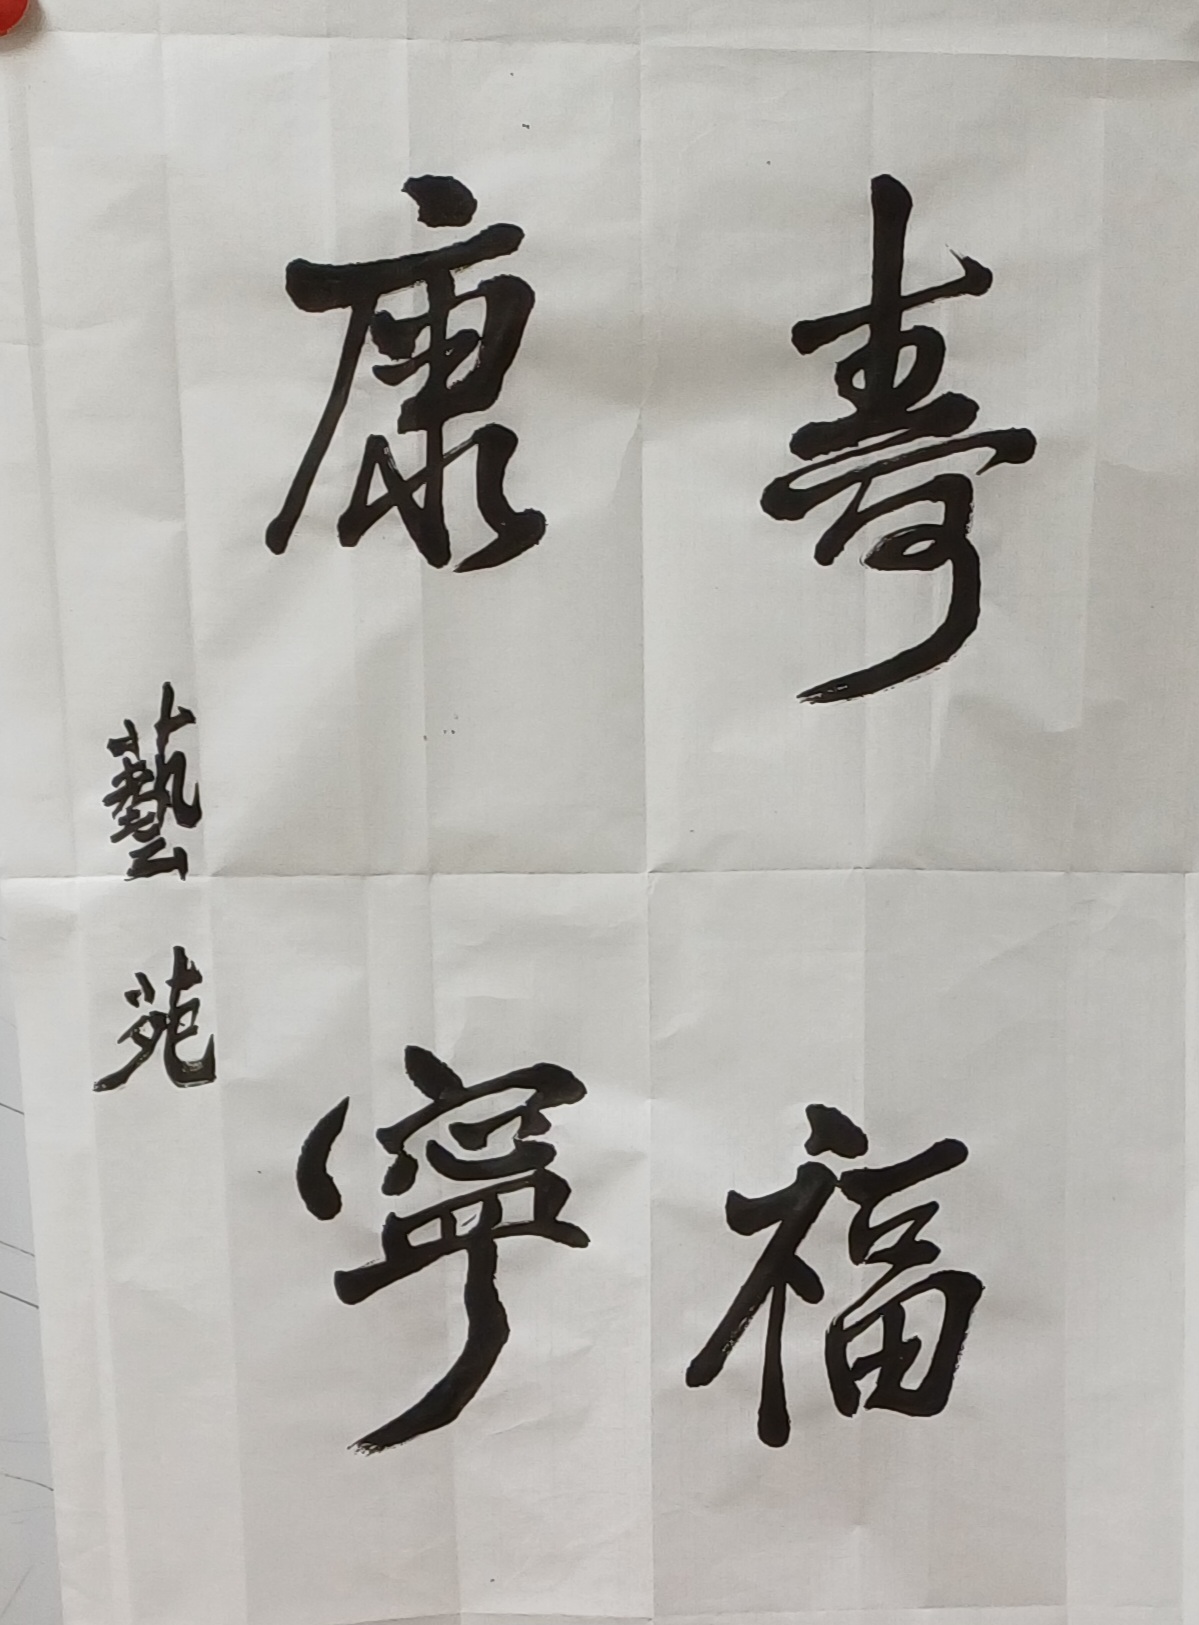 壽福
康寧
藝苑